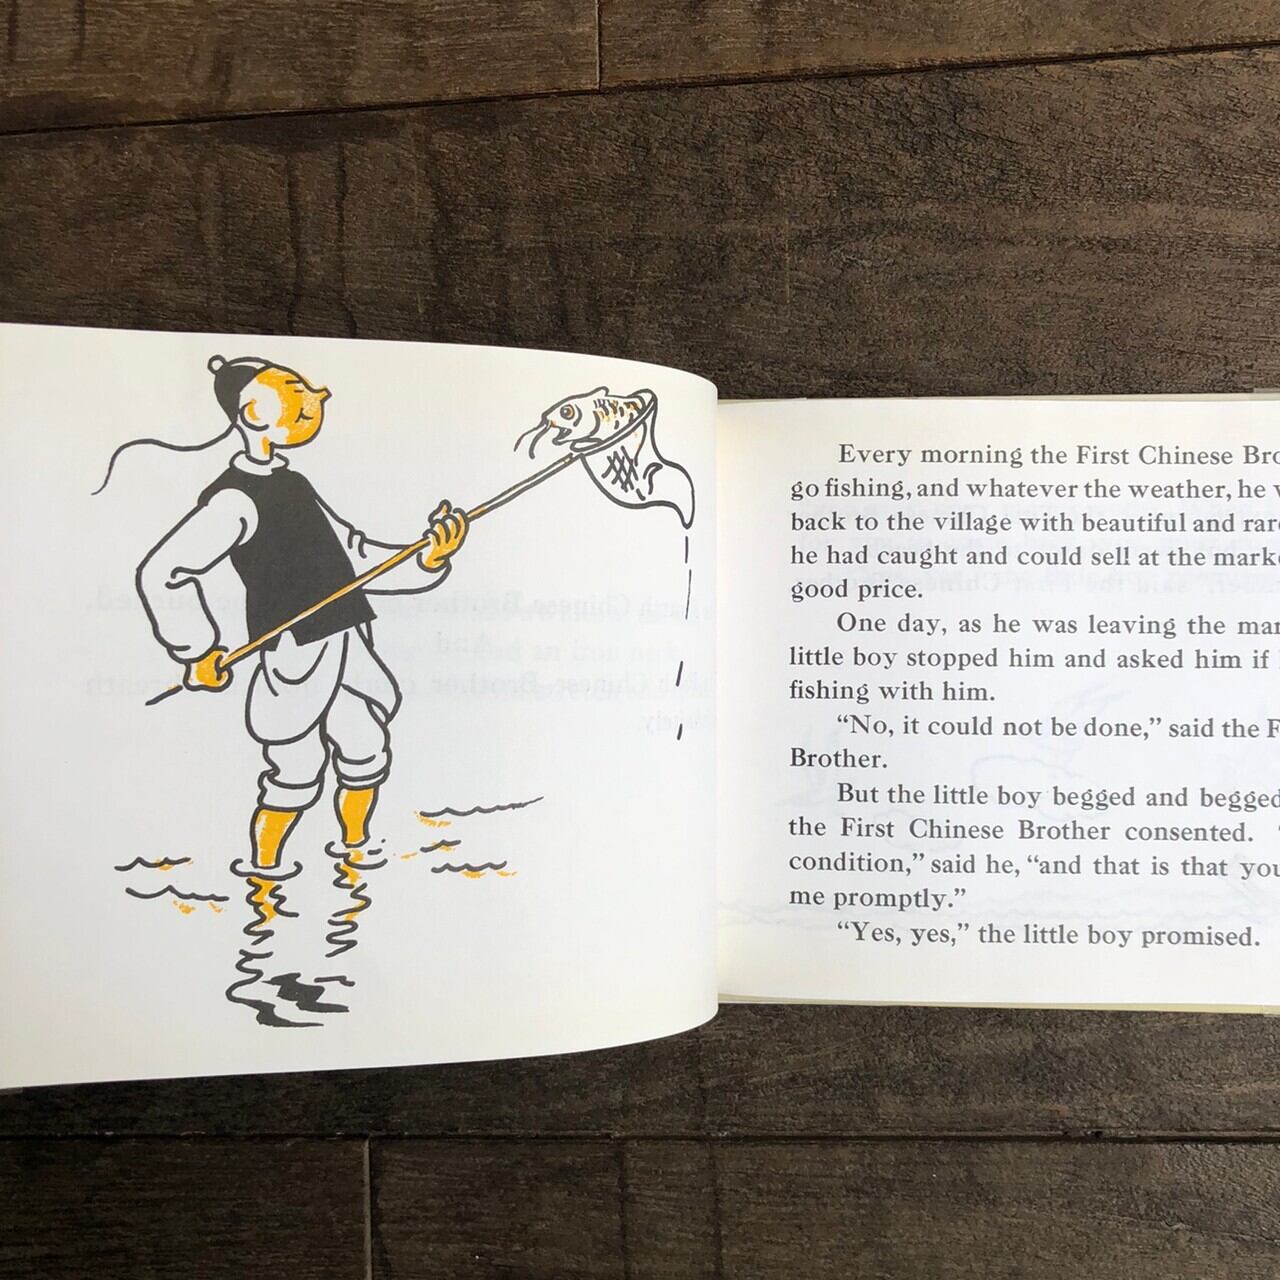 Every morning the First Chinese Bro
go fishing, and whatever the weather, he
back to the village with beautiful and rare
he had caught and could sell at the marke
good price.
One day, as he was leaving the mar
little boy stopped him and asked him if
fishing with him.
“No, it could not be done,” said the F
Brother.
But the little boy begged and begged
the First Chinese Brother consented.
condition,” said he, “and that is that you
me promptly.”
“Yes, yes,” the little boy promised.